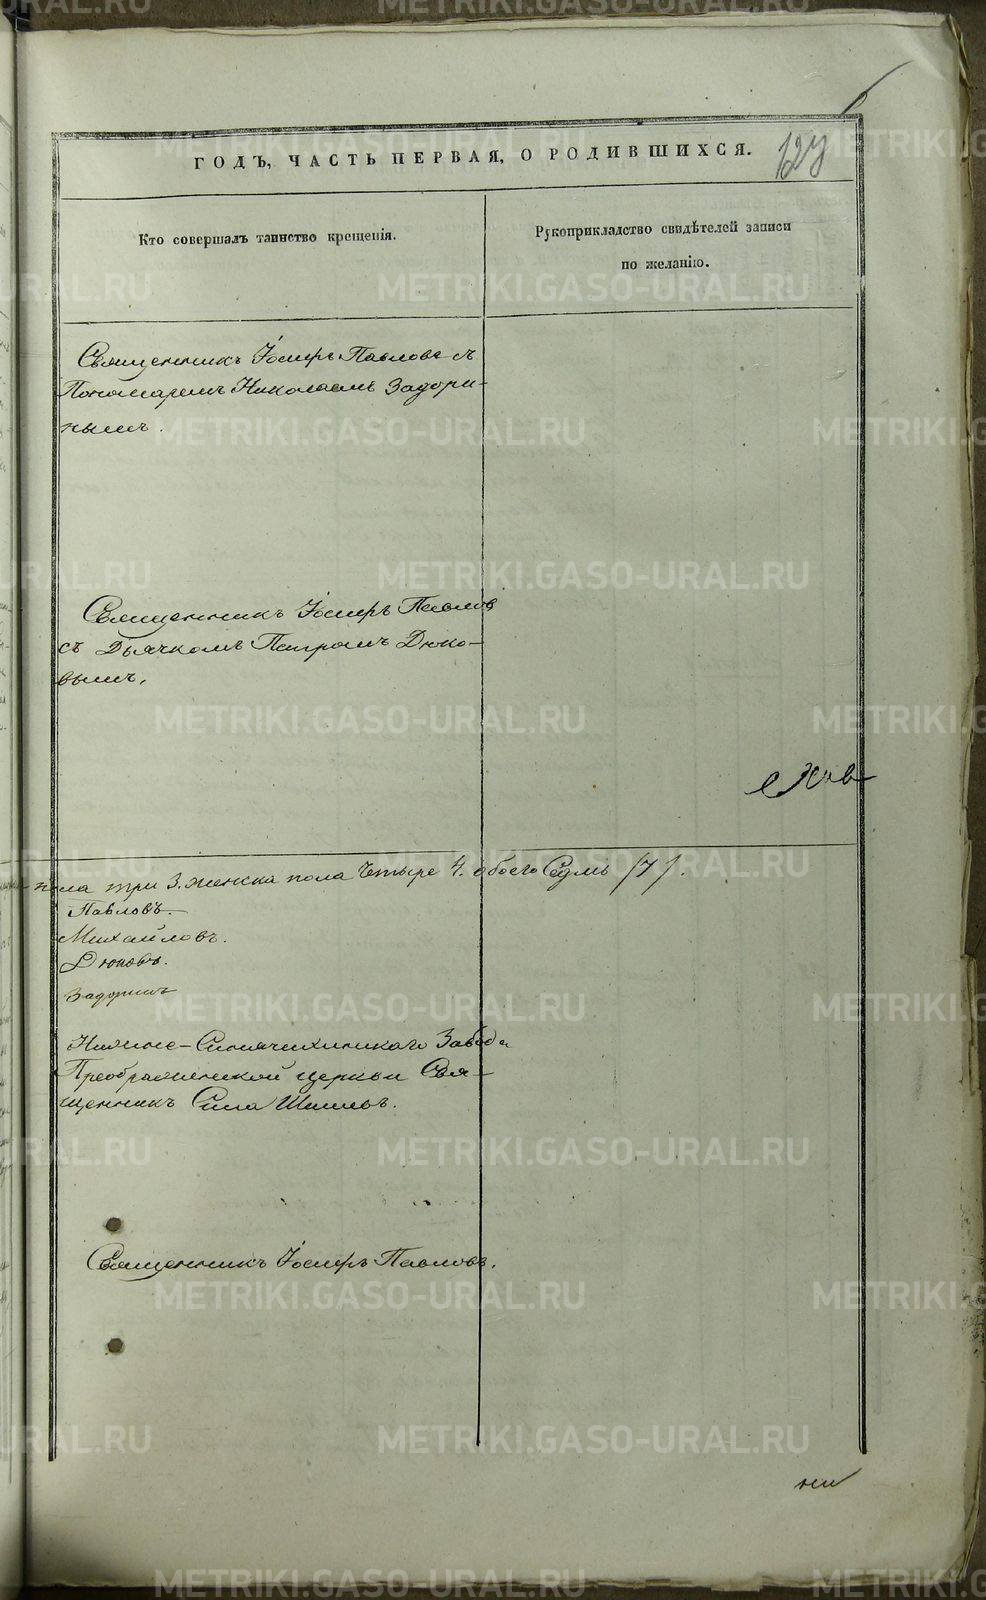 ГОДЪ, ЧАСТЬ ПЕРВАЯ, О РОДИВШИХСЯ.
Кто совершалъ таинство крещенія.
Рукоприкладство свидѣтелей записи
по желанію.
Священникъ Іосифъ Павловъ съ
Пономаремъ Николаемъ Задори-
нымъ.
Священникъ Іосифъ Павлов
съ Дьячкомъ Петромъ Дюко-
вымъ.
пола три 3. женска пола четыре 4. обоего Седмь /7/.
Павловъ.
Михайловъ.
Дюковъ.
Задоринъ
Нижне-Синячихинскаго Завода
Преображенской церкви Свя-
щенникъ Сила
Священникъ Іосифъ Павловъ.
METRIKI.GASO-URAL.RU